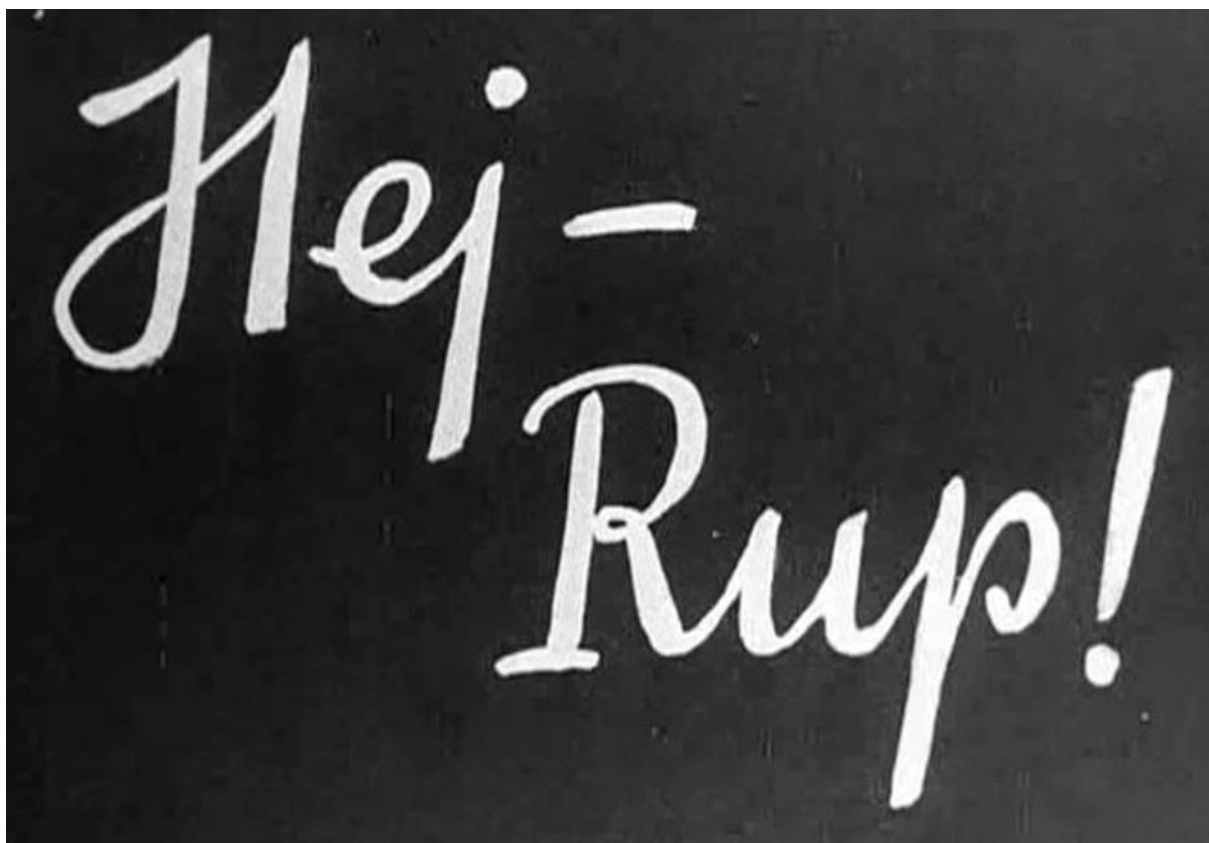 Hej-
Rup!